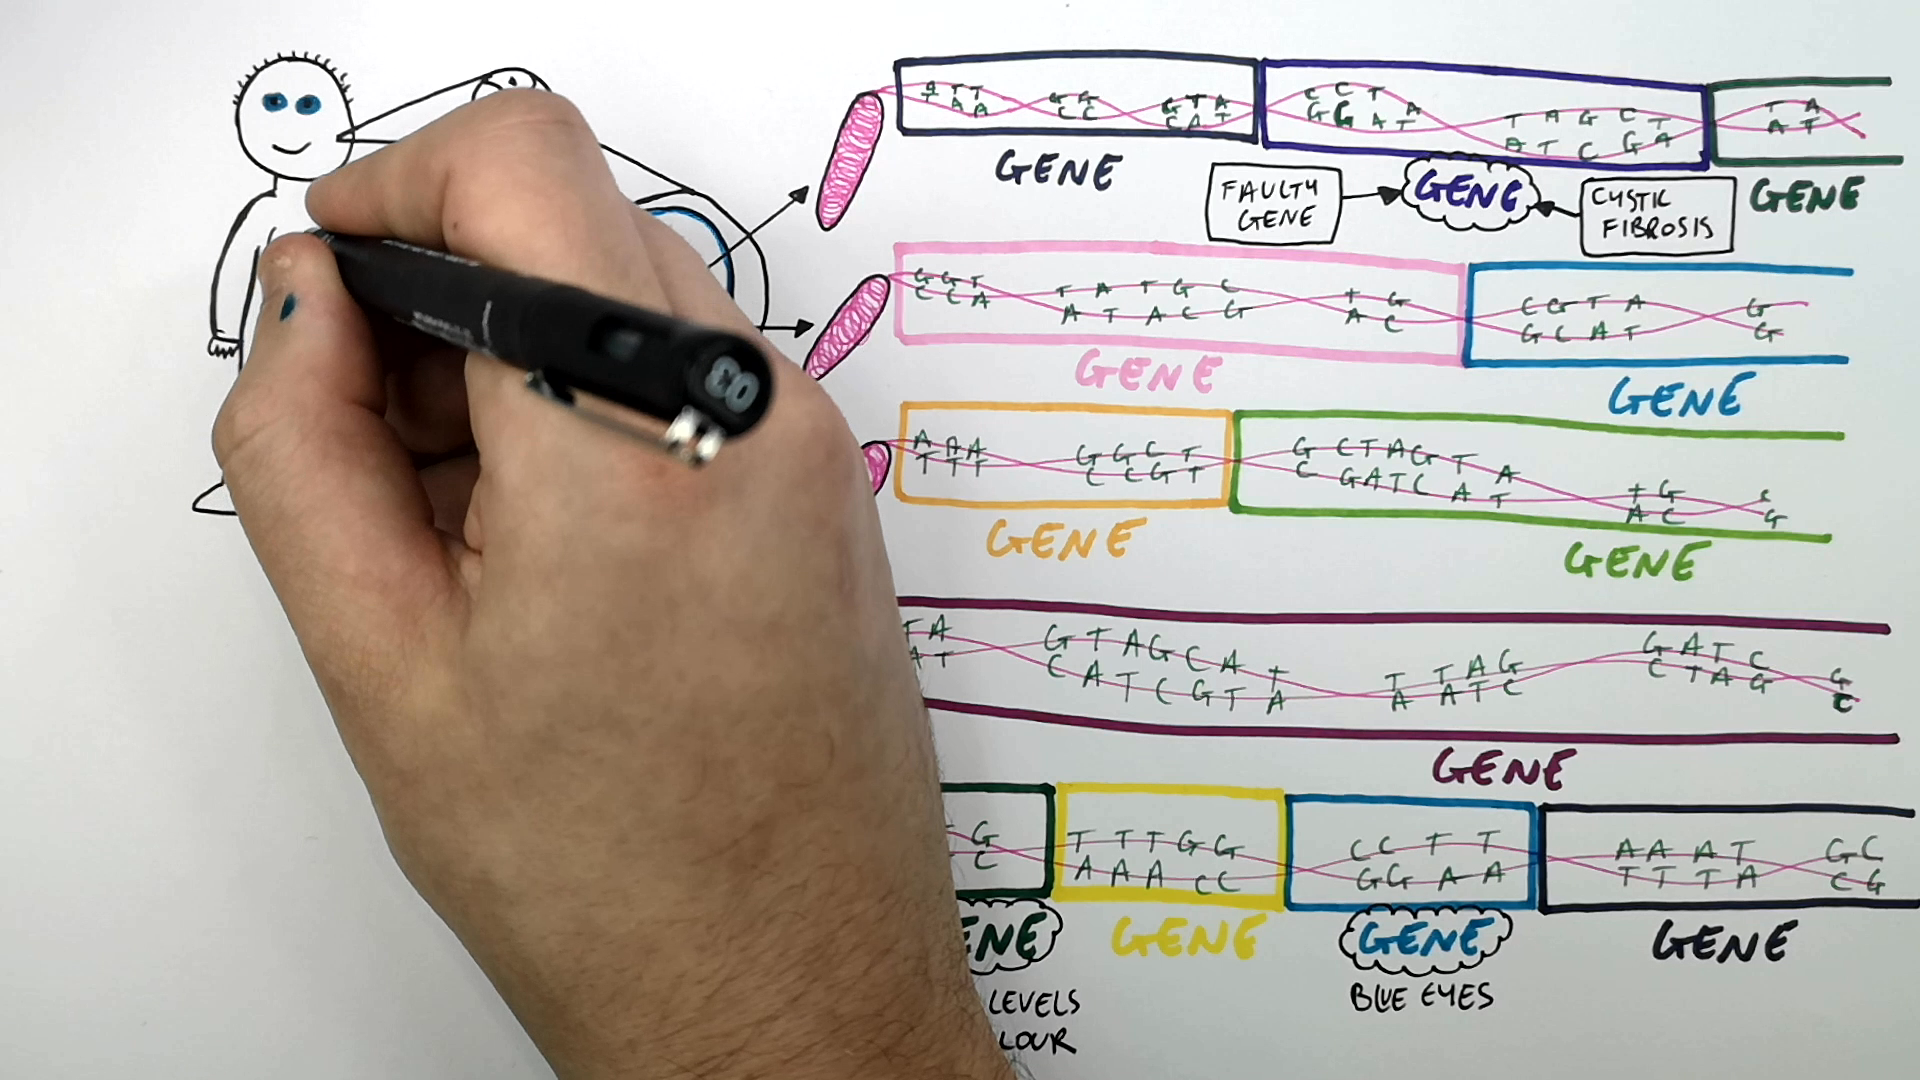 A T T G G G T A C C T A T A G C T T A
T A A C C C A T G G A T A T C G A A T
GENE
FAULTY
GENE
GENE
CYSTIC
FIBROSIS
GENE
G G T T A T G C T G C G T A G
C C A A T A C G A C G C A T G
GENE
GENE
A A A G G C T G C T A G T A T G C
T T T C C G T C G A T C A T A C G
GENE
GENE
T A G T A G C A T T T A G G A T C G
A T C A T C G T A A A T C C T A G C
GENE
G T T T G G C C T T A A A T G C
C A A A C C G G A A T T T A C G
GENE
GENE
GENE
LEVELS
BLUE EYES
03